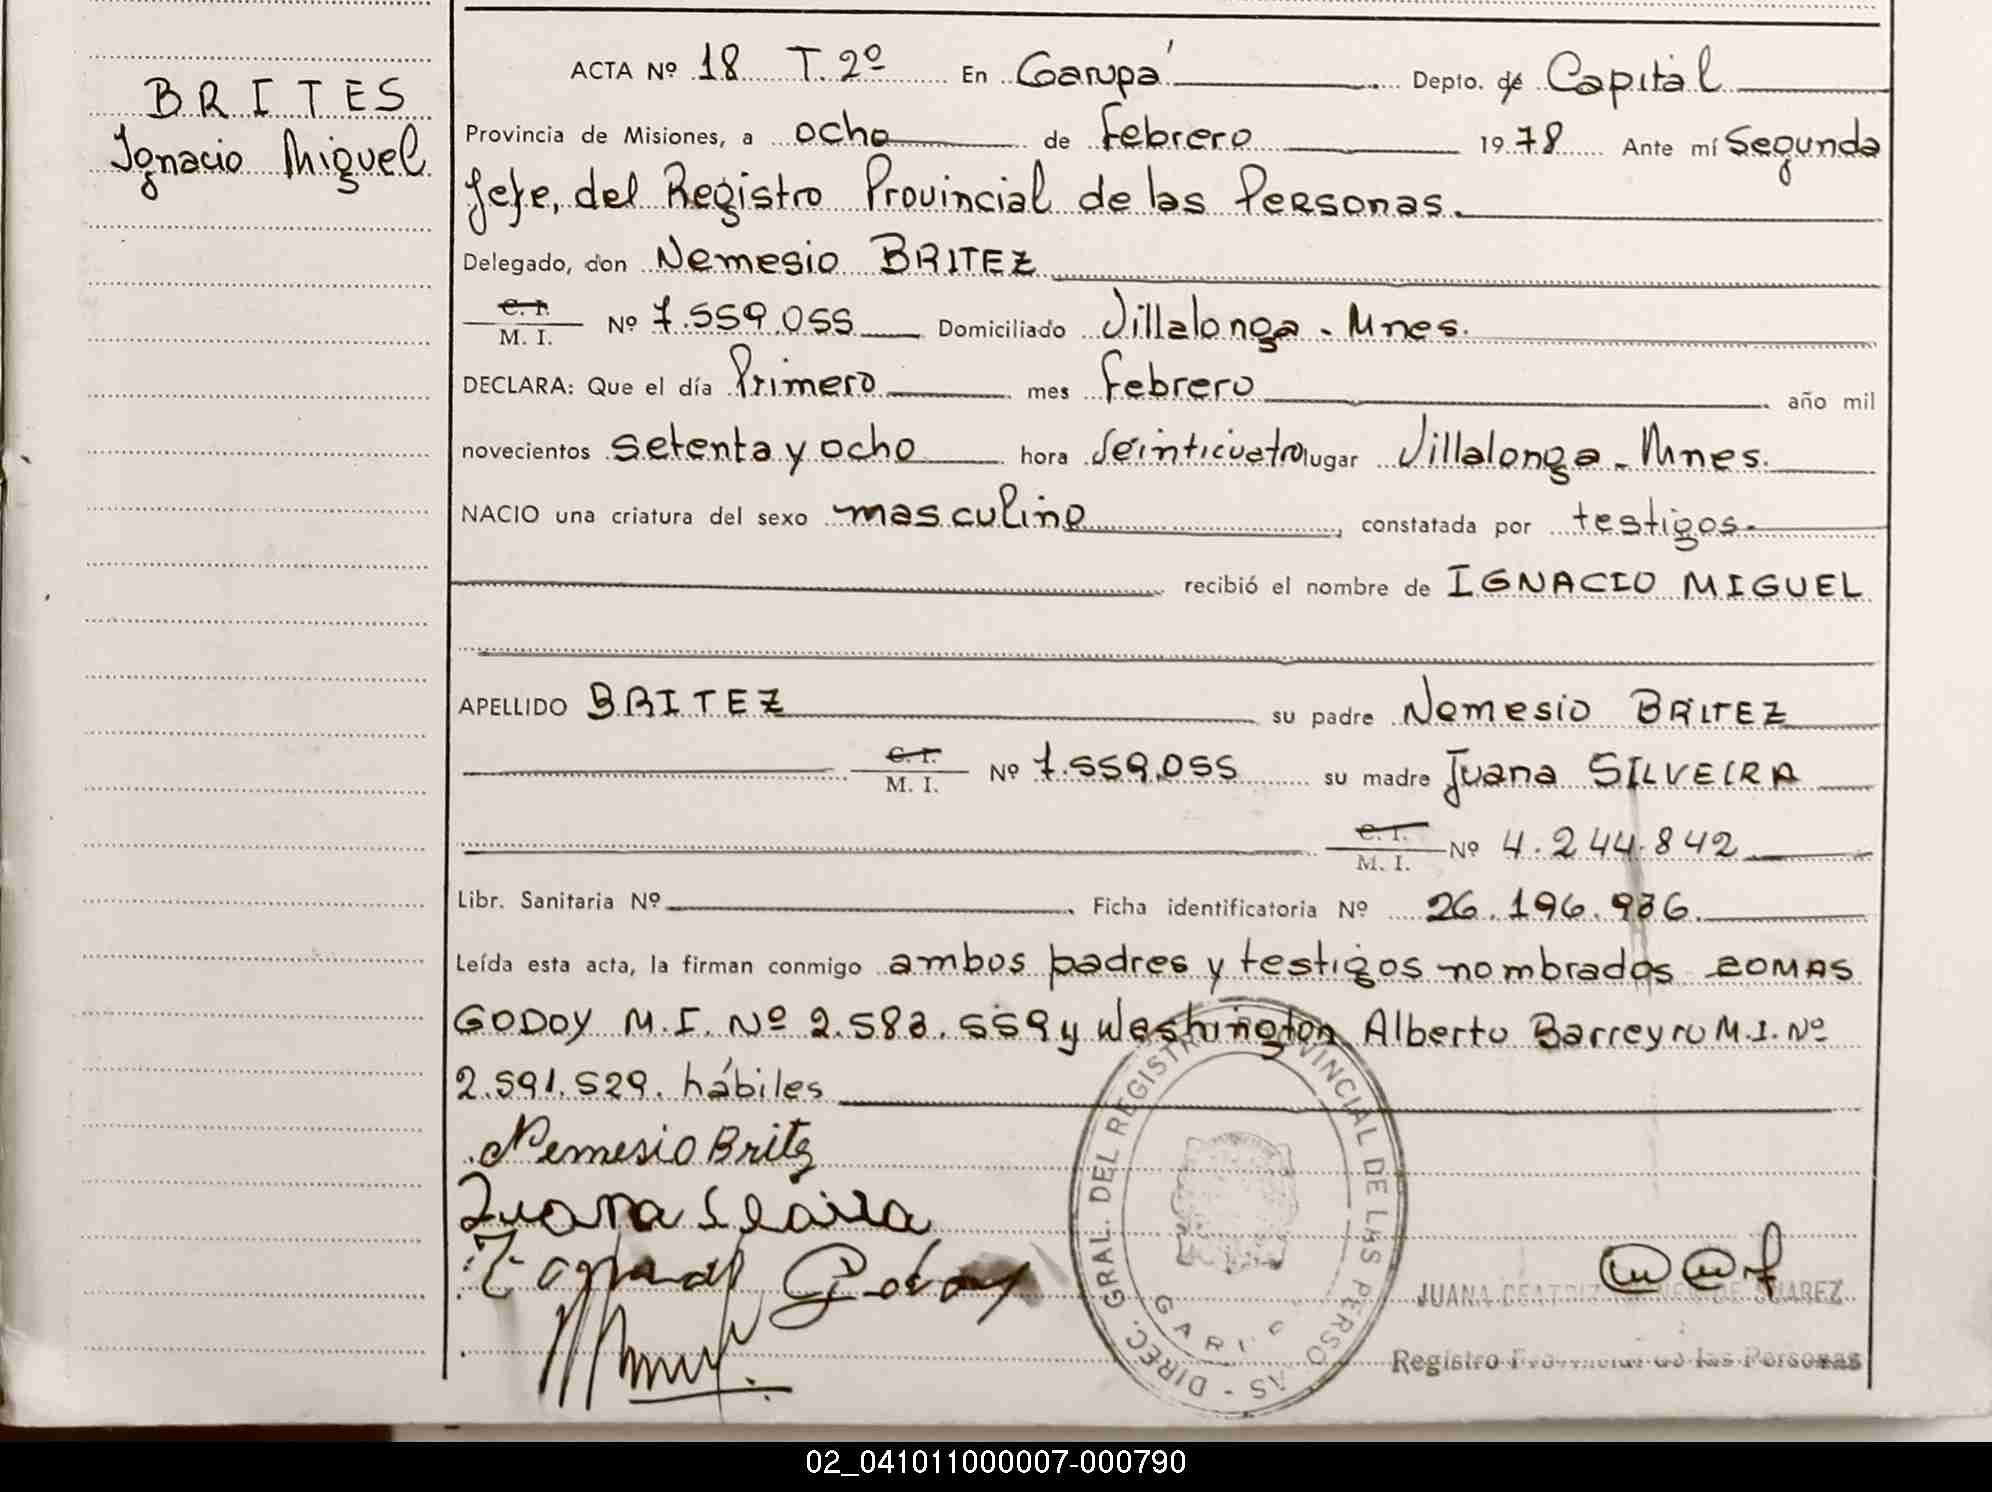 BRITES
Ignacio Miguel
ACTA Nº 18 T. 2º En Garupá Depto. de Capital
Provincia de Misiones, a ocho de Febrero 1978 Ante mí Segunda
Jefe, del Registro Provincial de las Personas.
Delegado, don Nemesio BRITEZ
C. I.
M. I. Nº 7.559.055 Domiciliado Villalonga - Mnes.
DECLARA: Que el día Primero mes Febrero año mil
novecientos setenta y ocho hora Veinticuatro lugar Villalonga - Mnes.
NACIO una criatura del sexo masculino, constatada por testigos.
recibió el nombre de IGNACIO MIGUEL
APELLIDO BRITEZ su padre Nemesio BRITEZ
C. I.
M. I. Nº 7.559.055 su madre Juana SILVEIRA
C. I.
M. I. Nº 4.244.842
Libr. Sanitaria Nº Ficha identificatoria Nº 26.196.936.
Leída esta acta, la firman conmigo ambos padres y testigos nombrados
GODOY M.I. Nº 2.583.559 y Washington Alberto Barreyro M.I. Nº
2.591.529. hábiles
Nemesio Britz
Juana
Godoy
DIREC. GRAL. DEL REGISTRO PROVINCIAL DE LAS PERSONAS
JUANA BEATRIZ DE SUAREZ
Registro Provincial de las Personas
02_041011000007-000790